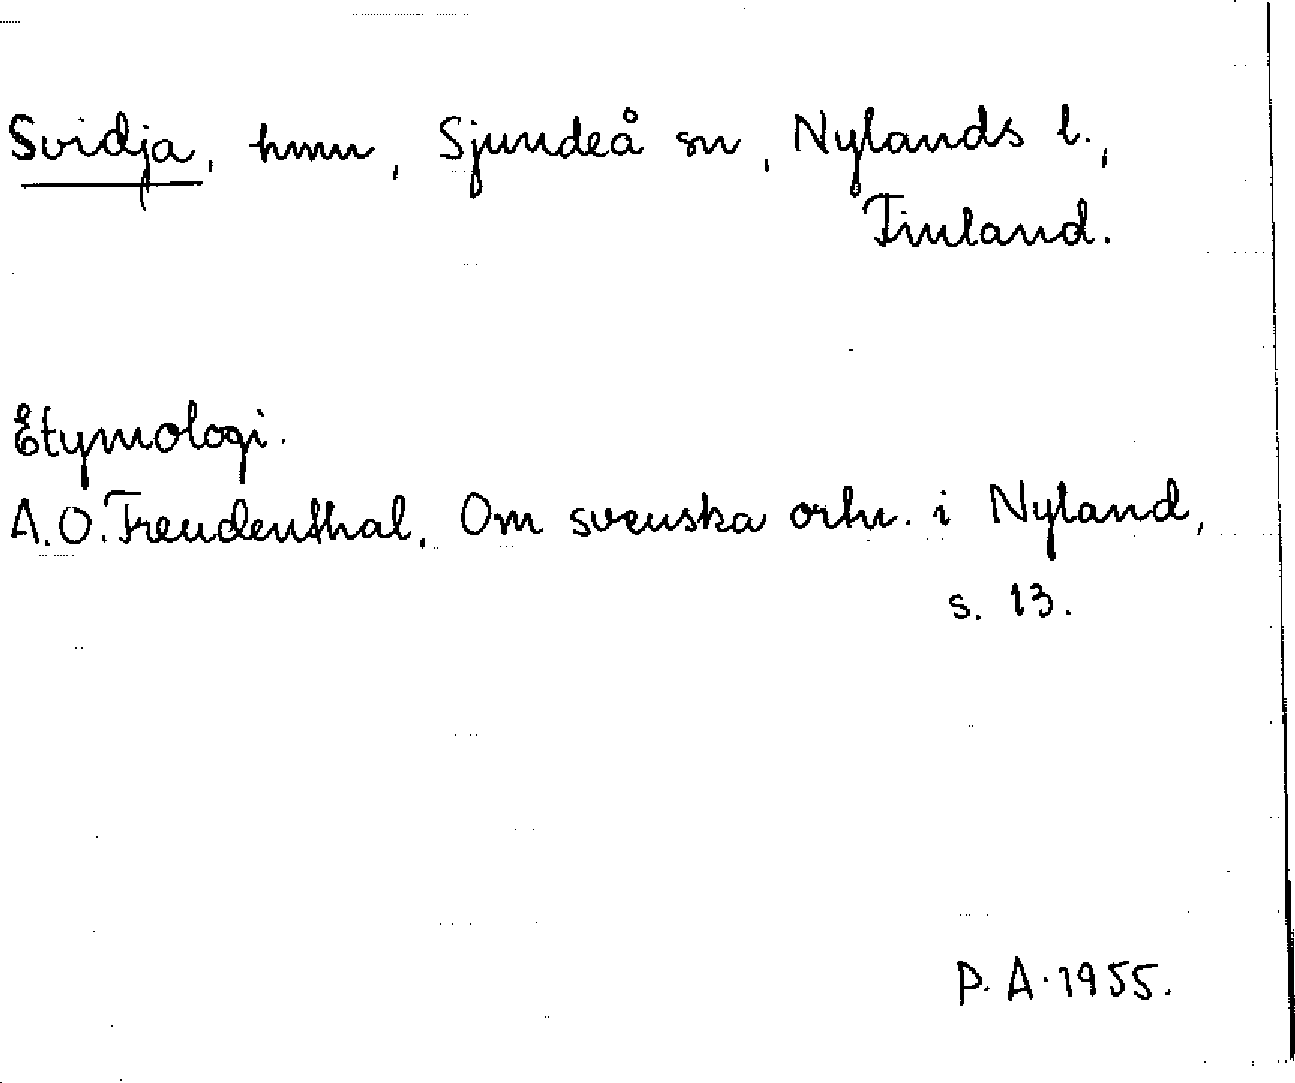 Svidja, hmn, Sjundeå sn, Nylands l.,
Finland.
Etymologi.
A.O. Freudenthal, Om svenska ortn. i Nyland,
s. 13.
P. A. 1955.